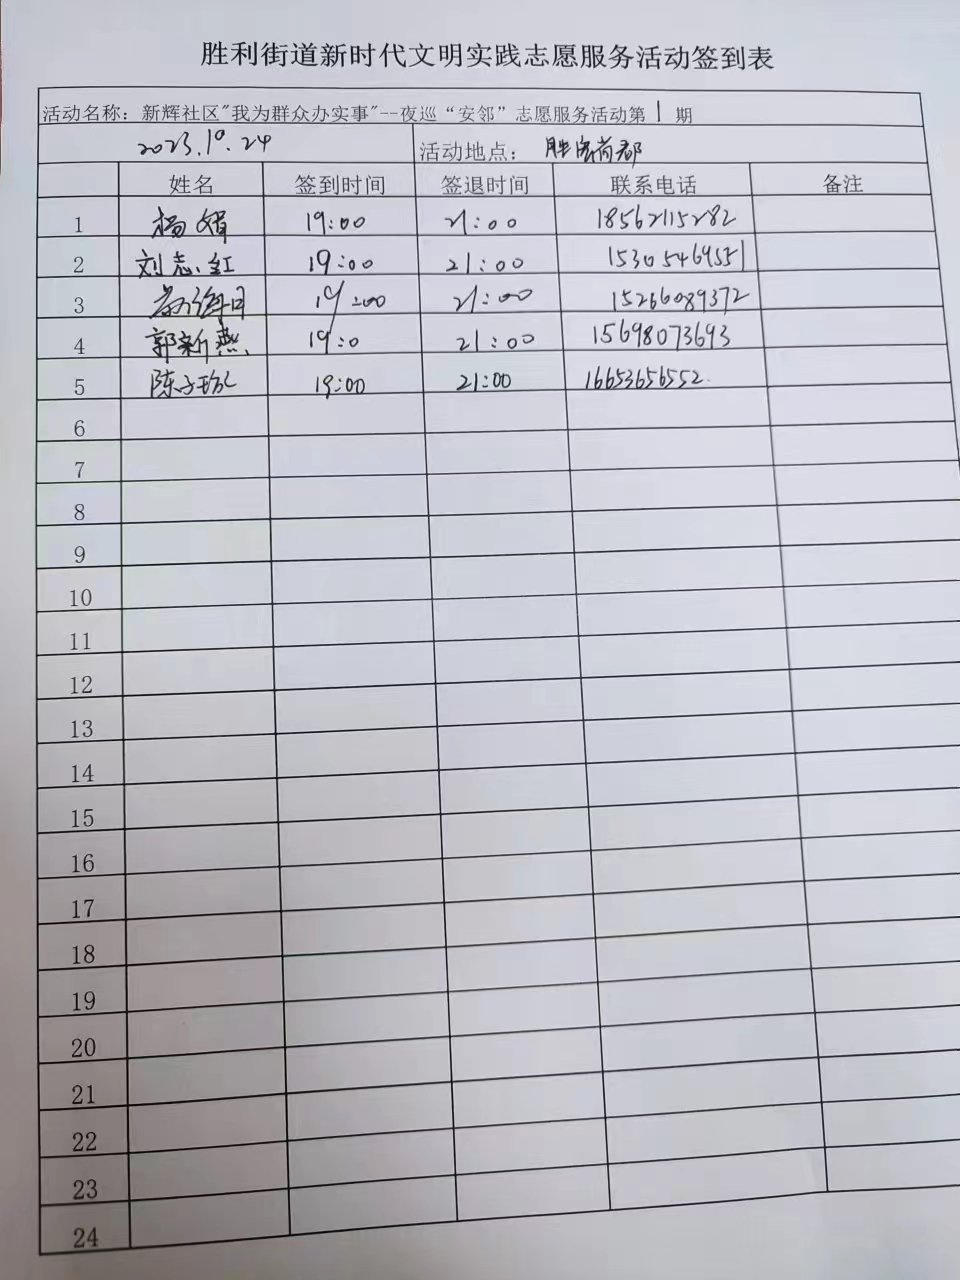 胜利街道新时代文明实践志愿服务活动签到表
活动名称：新辉社区"我为群众办实事"--夜巡“安邻”志愿服务活动第1期
2023.10.24 活动地点： 胜宏尚都
姓名 签到时间 签退时间 联系电话 备注
1 杨娟 19:00 21:00 18562115282
2 刘志红 19:00 21:00 15305469551
3 19:00 21:00 15266089372
4 郭新燕 19:0 21:00 15698073693
5 陈子 19:00 21:00 16653656552.
6
7
8
9
10
11
12
13
14
15
16
17
18
19
20
21
22
23
24